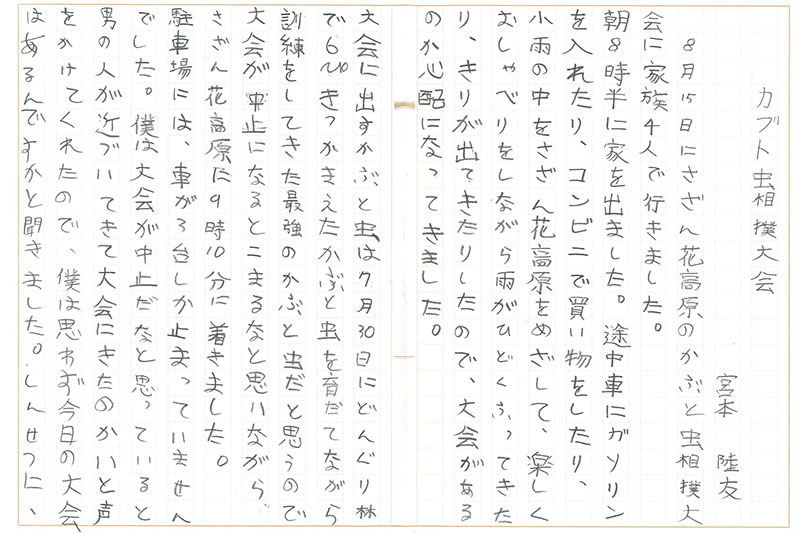 カブト虫相撲大会
宮本　陸友
８月１５日にさざん花高原のかぶと虫相撲大
会に家族４人で行きました。
朝８時半に家を出ました。途中車にガソリン
を入れたり、コンビニで買い物をしたり、
小雨の中をさざん花高原をめざして、楽しく
おしゃべりをしながら雨がひどくふってきた
り、きりが出てきたりしたので、大会がある
のか心配になってきました。
大会に出すかぶと虫は７月３０日にどんぐり林
で６ぴきつかまえたかぶと虫を育だてながら
訓練をしてきた最強のかぶと虫だと思うので
大会が中止になるとこまるなと思いながら、
さざん花高原に９時１０分に着きました。
駐車場には、車が３台しか止まっていません
でした。僕は大会が中止だなと思っていると
男の人が近づいてきて大会にきたのかいと声
をかけてくれたので、僕は思わず今日の大会
はあるんですかと聞きました。しんせつに、